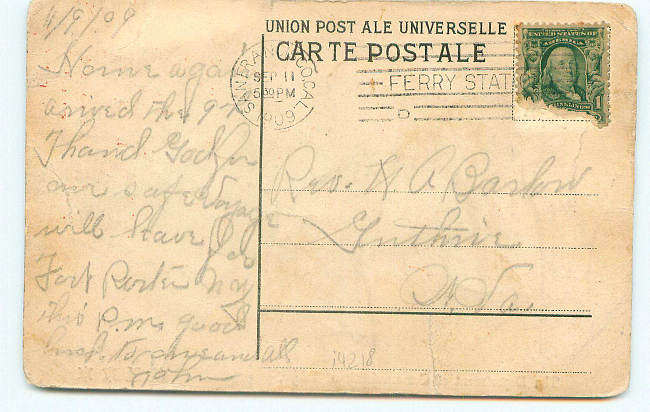 4/9/09
Home again
arived the 9th
Thank God for
our safe Voyage
will leave for
Fort Porter N.Y
this P.m. good
luck to one and all
John
UNION POSTALE UNIVERSELLE
CARTE POSTALE
SAN FRANCISCO, CAL.
SEP 11
5:30 PM
1909
FERRY STA
D
UNITED STATES OF
AMERICA
FRANKLIN
1
H. A. Barlow
Guthrie
14218